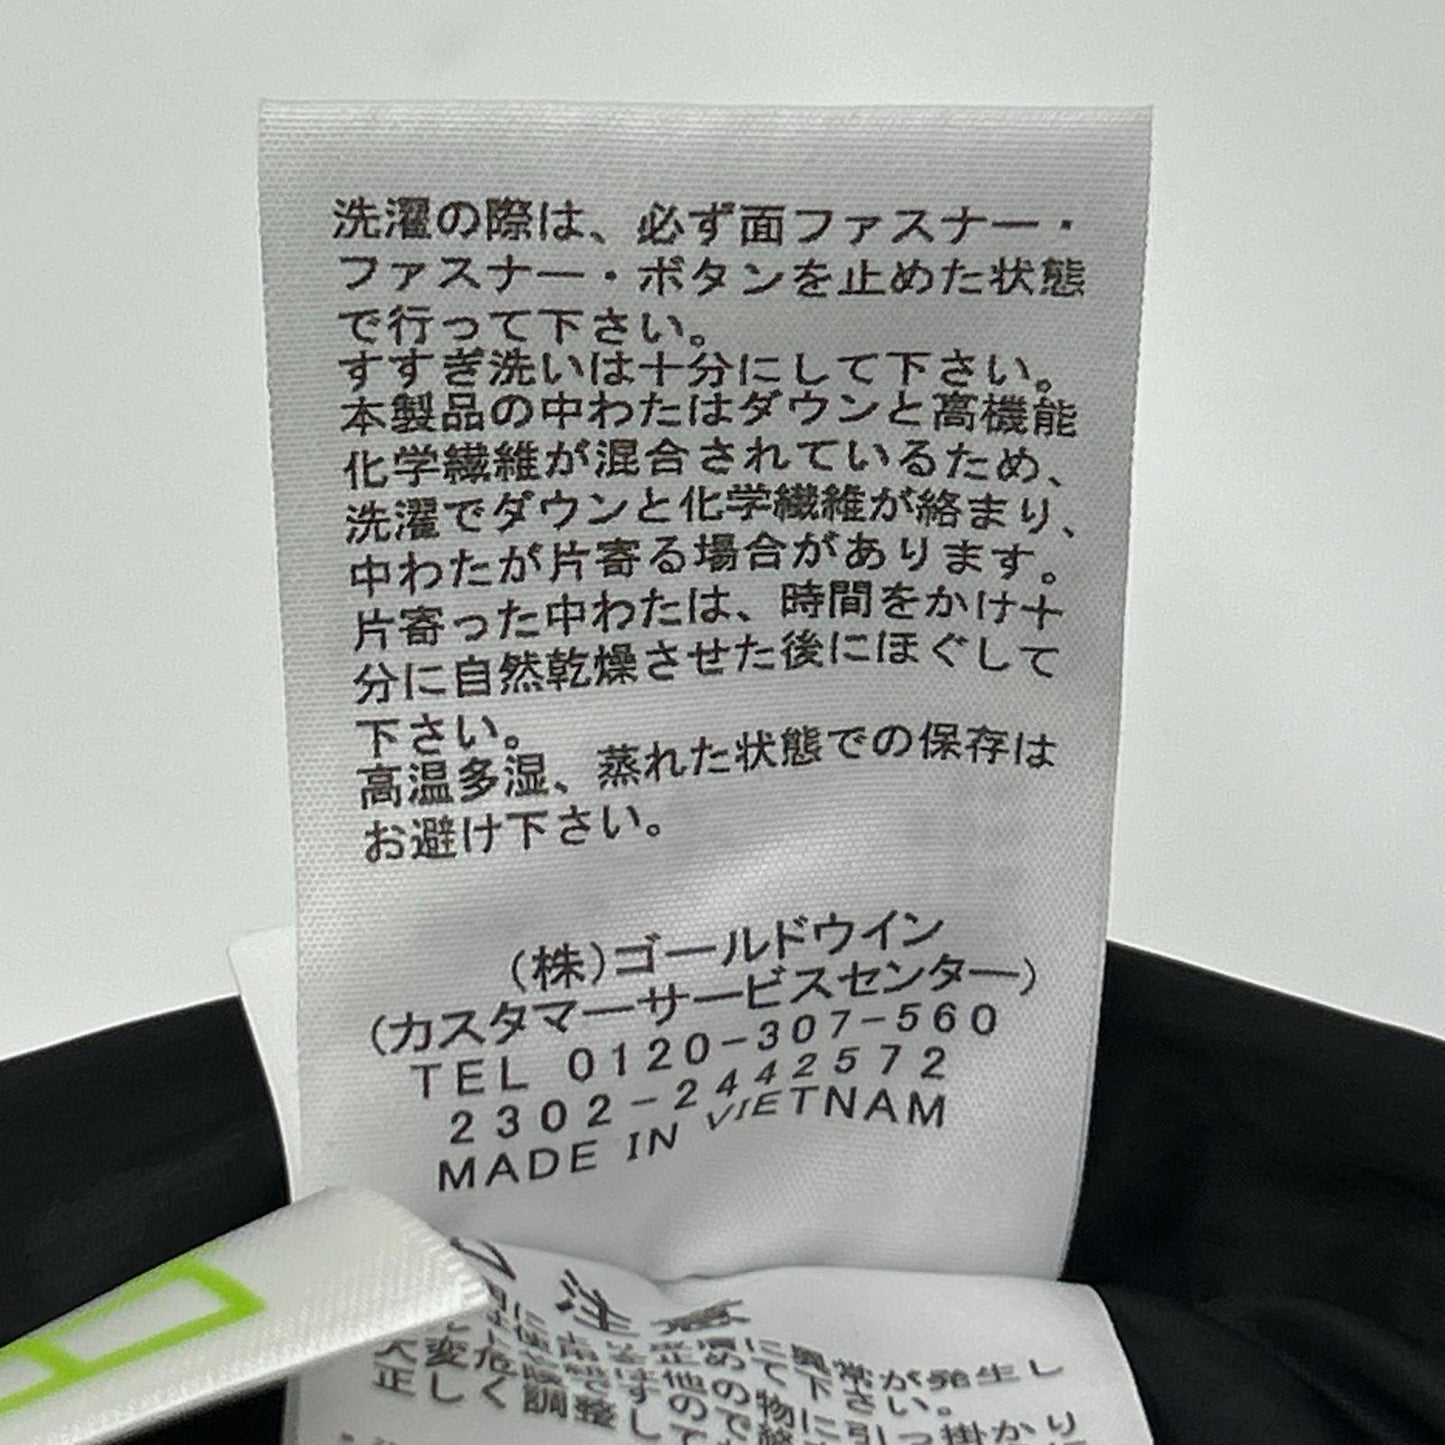 洗濯の際は、必ず面ファスナー・
ファスナー・ボタンを止めた状態
で行って下さい。
すすぎ洗いは十分にして下さい。
本製品の中わたはダウンと高機能
化学繊維が混合されているため、
洗濯でダウンと化学繊維が絡まり、
中わたが片寄る場合があります。
片寄った中わたは、時間をかけ十
分に自然乾燥させた後にほぐして
下さい。
高温多湿、蒸れた状態での保存は
お避け下さい。
(株)ゴールドウイン
(カスタマーサービスセンター)
TEL 0120-307-560
2302-2442572
MADE IN VIETNAM
注意
異常が発生し
大変危険 下さい。
正しく調整して 物に引っ掛かり